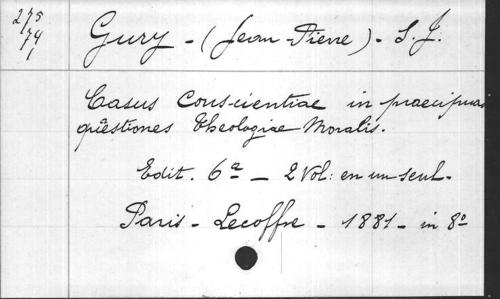 275
74
1
Gury - (Jean-Pierre) - S.J.
Casus Conscientiae in praecipuas
quëstiones theologiae Moralis.
Edit. 6ª - 2 Vol: en un seul -
Paris - Lecoffre - 1881 - in 8º